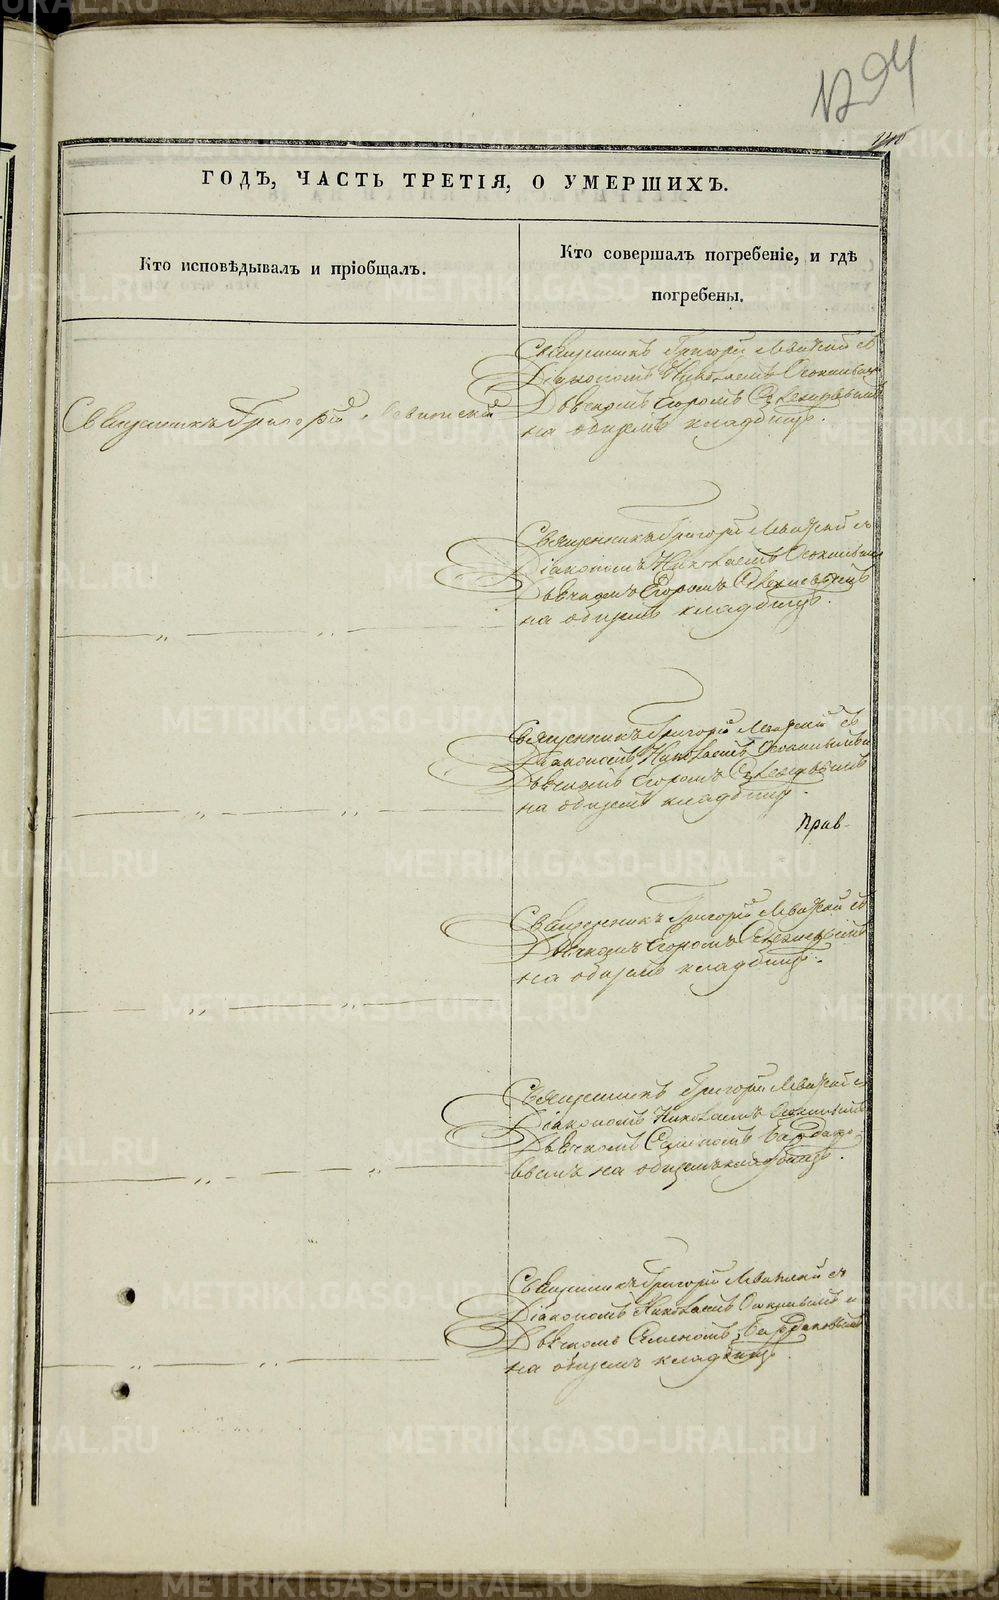 1294
ГОДЪ, ЧАСТЬ ТРЕТІЯ, О УМЕРШИХЪ.
Кто исповѣдывалъ и пріобщалъ.
Кто совершалъ погребеніе, и гдѣ
погребены.
Священникъ Григорій
Священникъ Григорій съ
Діакономъ Николаемъ
Дьячкомъ Егоромъ
на общемъ кладбищѣ.
Священникъ Григорій съ
Діакономъ Николаемъ
Дьячкомъ Егоромъ
на общемъ кладбищѣ.
Священникъ Григорій съ
Діакономъ Николаемъ
Дьячкомъ Егоромъ
на общемъ кладбищѣ.
Прав-
Священникъ Григорій съ
Дьячкомъ Егоромъ
на общемъ кладбищѣ.
Священникъ Григорій съ
Діакономъ Николаемъ
Дьячкомъ Семеномъ Бардако-
вымъ на общемъ кладбищѣ.
Священникъ Григорій съ
Діакономъ Николаемъ и
Дьячкомъ Семеномъ Бардаковымъ
на общемъ кладбищѣ.
METRIKI.GASO-URAL.RU